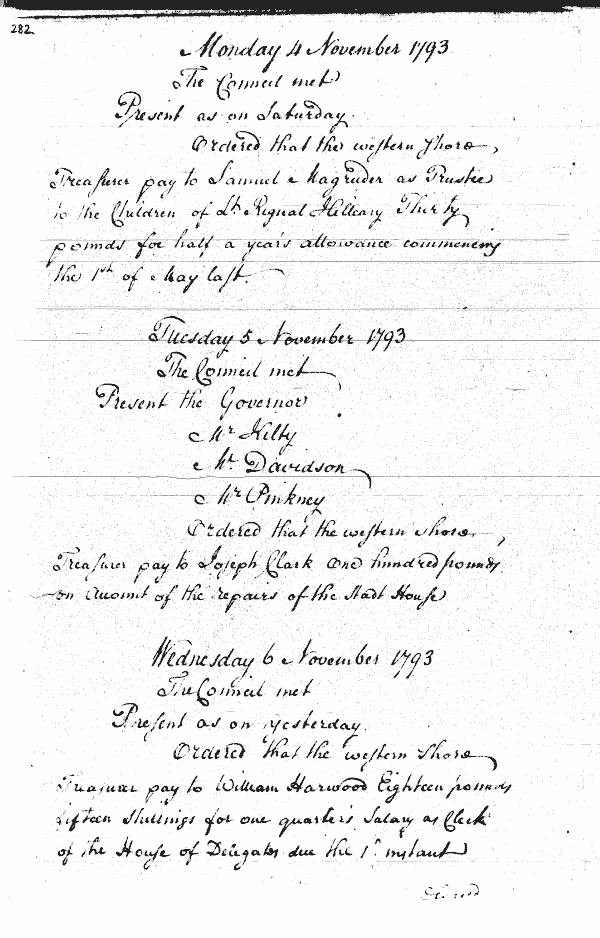 282
Monday 4 November 1793
The Council met
Present as on Saturday.
Ordered that the western Shore
Treasurer pay to Samuel Magruder as Trustee
to the Children of Lt Rignal Hilleary Thirty
pounds for half a year's allowance commencing
the 1st of May last.
Tuesday 5 November 1793
The Council met
Present the Governor
Mr Kilty
Mr Davidson
Mr Pinkney
Ordered that the western shore
Treasurer pay to Joseph Clark One hundred pounds
on Account of the repairs of the Stadt House
Wednesday 6 November 1793
The Council met
Present as on yesterday.
Ordered that the western Shore
Treasurer pay to William Harwood Eighteen pounds
fifteen Shillings for one quarter's Salary as Clerk
of the House of Delegates due the 1st instant
Ordered